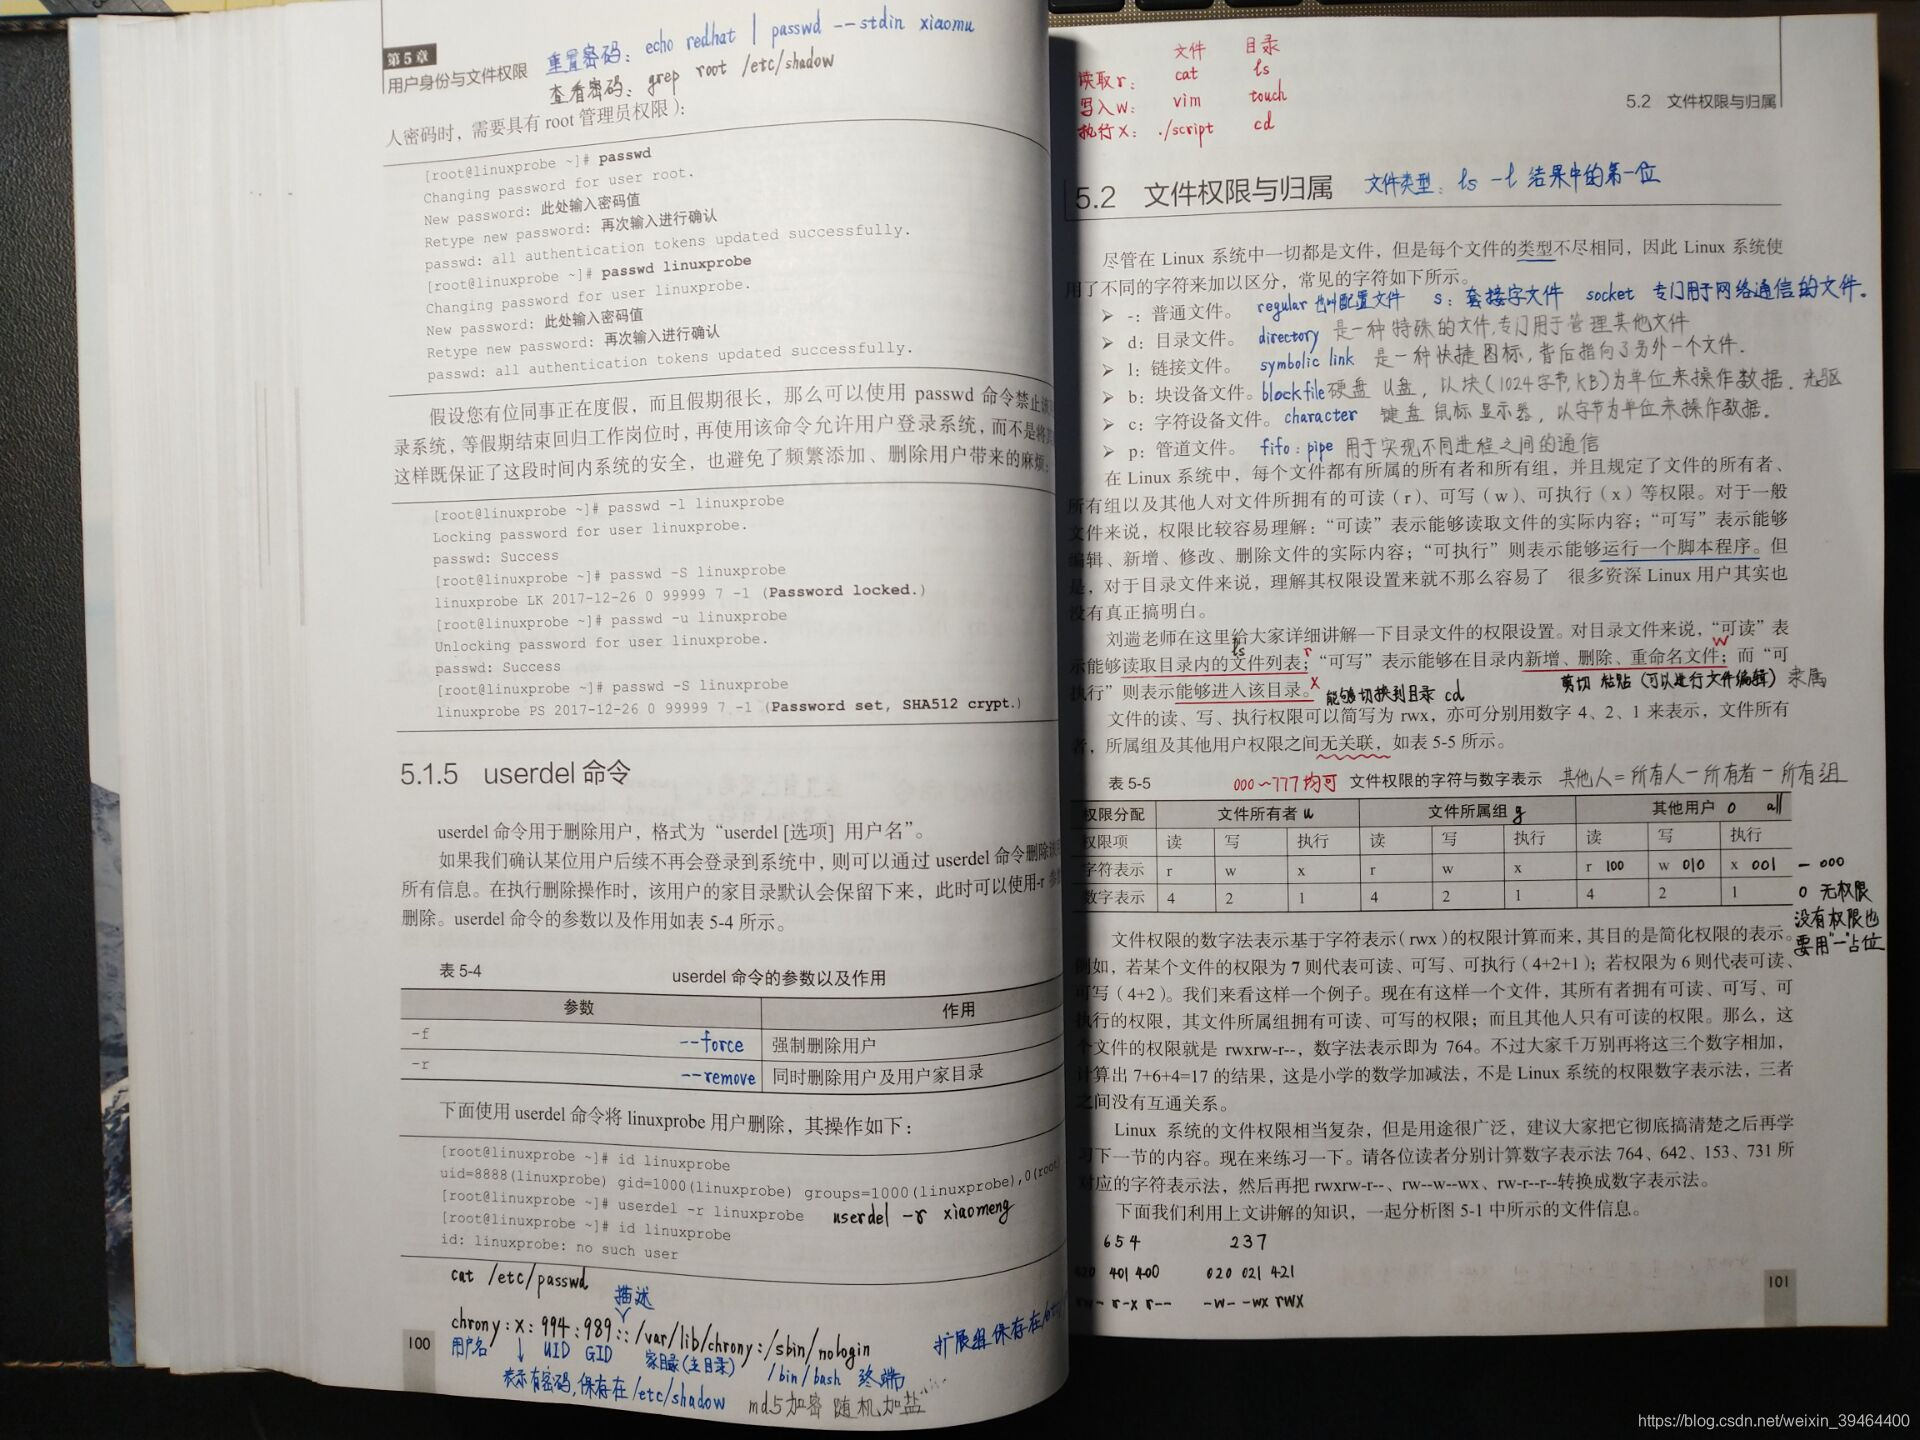 第5章
用户身份与文件权限
重置密码：echo redhat | passwd --stdin xiaomu
查看密码：grep root /etc/shadow
人密码时，需要具有 root 管理员权限）：
[root@linuxprobe ~]# passwd
Changing password for user root.
New password: 此处输入密码值
Retype new password: 再次输入进行确认
passwd: all authentication tokens updated successfully.
[root@linuxprobe ~]# passwd linuxprobe
Changing password for user linuxprobe.
New password: 此处输入密码值
Retype new password: 再次输入进行确认
passwd: all authentication tokens updated successfully.
假设您有位同事正在度假，而且假期很长，那么可以使用 passwd 命令禁止
录系统，等假期结束回归工作岗位时，再使用该命令允许用户登录系统，而不是将
这样既保证了这段时间内系统的安全，也避免了频繁添加、删除用户带来的麻烦：
[root@linuxprobe ~]# passwd -l linuxprobe
Locking password for user linuxprobe.
passwd: Success
[root@linuxprobe ~]# passwd -S linuxprobe
linuxprobe LK 2017-12-26 0 99999 7 -1 (Password locked.)
[root@linuxprobe ~]# passwd -u linuxprobe
Unlocking password for user linuxprobe.
passwd: Success
[root@linuxprobe ~]# passwd -S linuxprobe
linuxprobe PS 2017-12-26 0 99999 7 -1 (Password set, SHA512 crypt.)
5.1.5 userdel 命令
userdel 命令用于删除用户，格式为“userdel [选项] 用户名”。
如果我们确认某位用户后续不再会登录到系统中，则可以通过 userdel 命令删除
所有信息。在执行删除操作时，该用户的家目录默认会保留下来，此时可以使用-r
删除。userdel 命令的参数以及作用如表 5-4 所示。
表 5-4 userdel 命令的参数以及作用
参数 作用
-f --force 强制删除用户
-r --remove 同时删除用户及用户家目录
下面使用 userdel 命令将 linuxprobe 用户删除，其操作如下：
[root@linuxprobe ~]# id linuxprobe
uid=8888(linuxprobe) gid=1000(linuxprobe) groups=1000(linuxprobe),0(root)
[root@linuxprobe ~]# userdel -r linuxprobe userdel -r xiaomeng
[root@linuxprobe ~]# id linuxprobe
id: linuxprobe: no such user
cat /etc/passwd
描述
chrony:x:994:989::/var/lib/chrony:/sbin/nologin
用户名 UID GID 家目录(主目录) /bin/bash 终端
表示有密码，保存在/etc/shadow md5加密 随机加盐
扩展组保存在
100
文件 目录
读取r： cat ls
写入w： vim touch
执行x： ./script cd
5.2 文件权限与归属
5.2 文件权限与归属 文件类型：ls -l 结果中的第一位
尽管在 Linux 系统中一切都是文件，但是每个文件的类型不尽相同，因此 Linux 系统使
用了不同的字符来加以区分，常见的字符如下所示。
➢ -：普通文件。 regular 也叫配置文件 s：套接字文件 socket 专门用于网络通信的文件.
➢ d：目录文件。 directory 是一种特殊的文件,专门用于管理其他文件
➢ l：链接文件。 symbolic link 是一种快捷图标,背后指向了另外一个文件.
➢ b：块设备文件。 blockfile 硬盘 U盘，以块(1024字节,KB)为单位来操作数据. 光驱
➢ c：字符设备文件。 character 键盘 鼠标 显示器，以字节为单位来操作数据.
➢ p：管道文件。 fifo：pipe 用于实现不同进程之间的通信
在 Linux 系统中，每个文件都有所属的所有者和所有组，并且规定了文件的所有者、
所有组以及其他人对文件所拥有的可读（r）、可写（w）、可执行（x）等权限。对于一般
文件来说，权限比较容易理解：“可读”表示能够读取文件的实际内容；“可写”表示能够
编辑、新增、修改、删除文件的实际内容；“可执行”则表示能够运行一个脚本程序。但
是，对于目录文件来说，理解其权限设置来就不那么容易了 很多资深 Linux 用户其实也
没有真正搞明白。
刘遄老师在这里给大家详细讲解一下目录文件的权限设置。对目录文件来说，“可读”表
ls r w
示能够读取目录内的文件列表；“可写”表示能够在目录内新增、删除、重命名文件；而“可
执行”则表示能够进入该目录。 x 能够切换到目录 cd 剪切 粘贴 (可以进行文件编辑) 隶属
文件的读、写、执行权限可以简写为 rwx，亦可分别用数字 4、2、1 来表示，文件所有
者，所属组及其他用户权限之间无关联，如表 5-5 所示。
表 5-5 000~777均可 文件权限的字符与数字表示 其他人=所有人-所有者-所有组
权限分配 文件所有者 u 文件所属组 g 其他用户 o all
权限项 读 写 执行 读 写 执行 读 写 执行
字符表示 r w x r w x r 100 w 010 x 001 - 000
数字表示 4 2 1 4 2 1 4 2 1 0 无权限
没有权限也
要用"-"占位
文件权限的数字法表示基于字符表示（rwx）的权限计算而来，其目的是简化权限的表示。
例如，若某个文件的权限为 7 则代表可读、可写、可执行（4+2+1）；若权限为 6 则代表可读、
可写（4+2）。我们来看这样一个例子。现在有这样一个文件，其所有者拥有可读、可写、可
执行的权限，其文件所属组拥有可读、可写的权限；而且其他人只有可读的权限。那么，这
个文件的权限就是 rwxrw-r--，数字法表示即为 764。不过大家千万别再将这三个数字相加，
计算出 7+6+4=17 的结果，这是小学的数学加减法，不是 Linux 系统的权限数字表示法，三者
之间没有互通关系。
Linux 系统的文件权限相当复杂，但是用途很广泛，建议大家把它彻底搞清楚之后再学
习下一节的内容。现在来练习一下。请各位读者分别计算数字表示法 764、642、153、731 所
对应的字符表示法，然后再把 rwxrw-r--、rw--w--wx、rw-r--r--转换成数字表示法。
下面我们利用上文讲解的知识，一起分析图 5-1 中所示的文件信息。
654 237
420 401 400 020 021 421
rw- r-x r-- -w- -wx rwx
101
https://blog.csdn.net/weixin_39464400